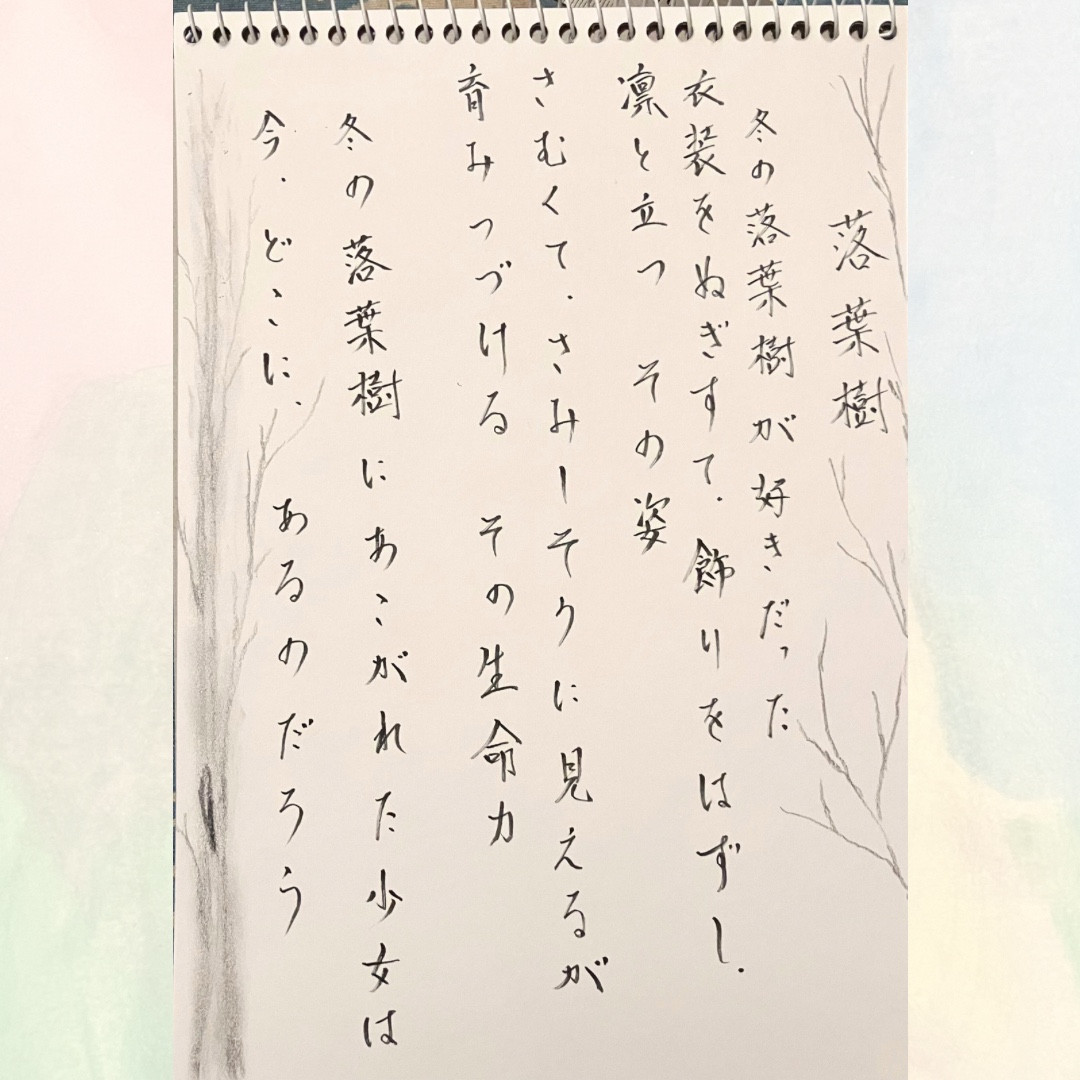 落葉樹
冬の落葉樹が好きだった
衣装をぬぎすて、飾りをはずし、
凛と立つ その姿
さむくて、さみしそうに見えるが
育みつづける その生命力
冬の落葉樹にあこがれた少女は
今、どこに、あるのだろう